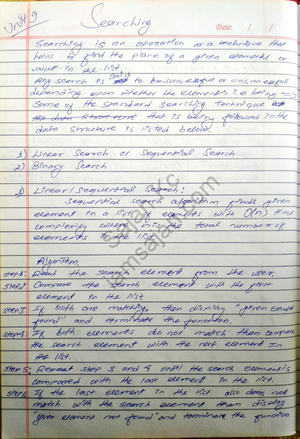 Unit 9
Searching
Date: / /
Searching is an operation or a technique that
helps to find the place of a given elements or
value in the list.
Any search is said to be successful or unsuccessful
depending upon whether the element i.e being
Some of the standard searching technique
the data structure that is being followed in the
data structure is listed below.
1) Linear Search or Sequential Search
2) Binary Search
1) Linear/Sequential Search:
Sequential search algorithm finds given
element in a list of elements with O(n) time
complexity where n is the total number of
elements in the list.
Algorithm
step1: Read the search element from the user.
Step2: Compare the search element with the
element in the list
Step3: If both are matching, then display "given element
found" and terminate the function.
Step4: If both elements do not match then compare
the search element with the next element in
the list.
Step5: Repeat step 3 and 4 until the search element is
compared with the last element in the list.
Step6: If the last element in the list also does not
match with the search element then display
"given element not found" and terminate the function.
iamsajan